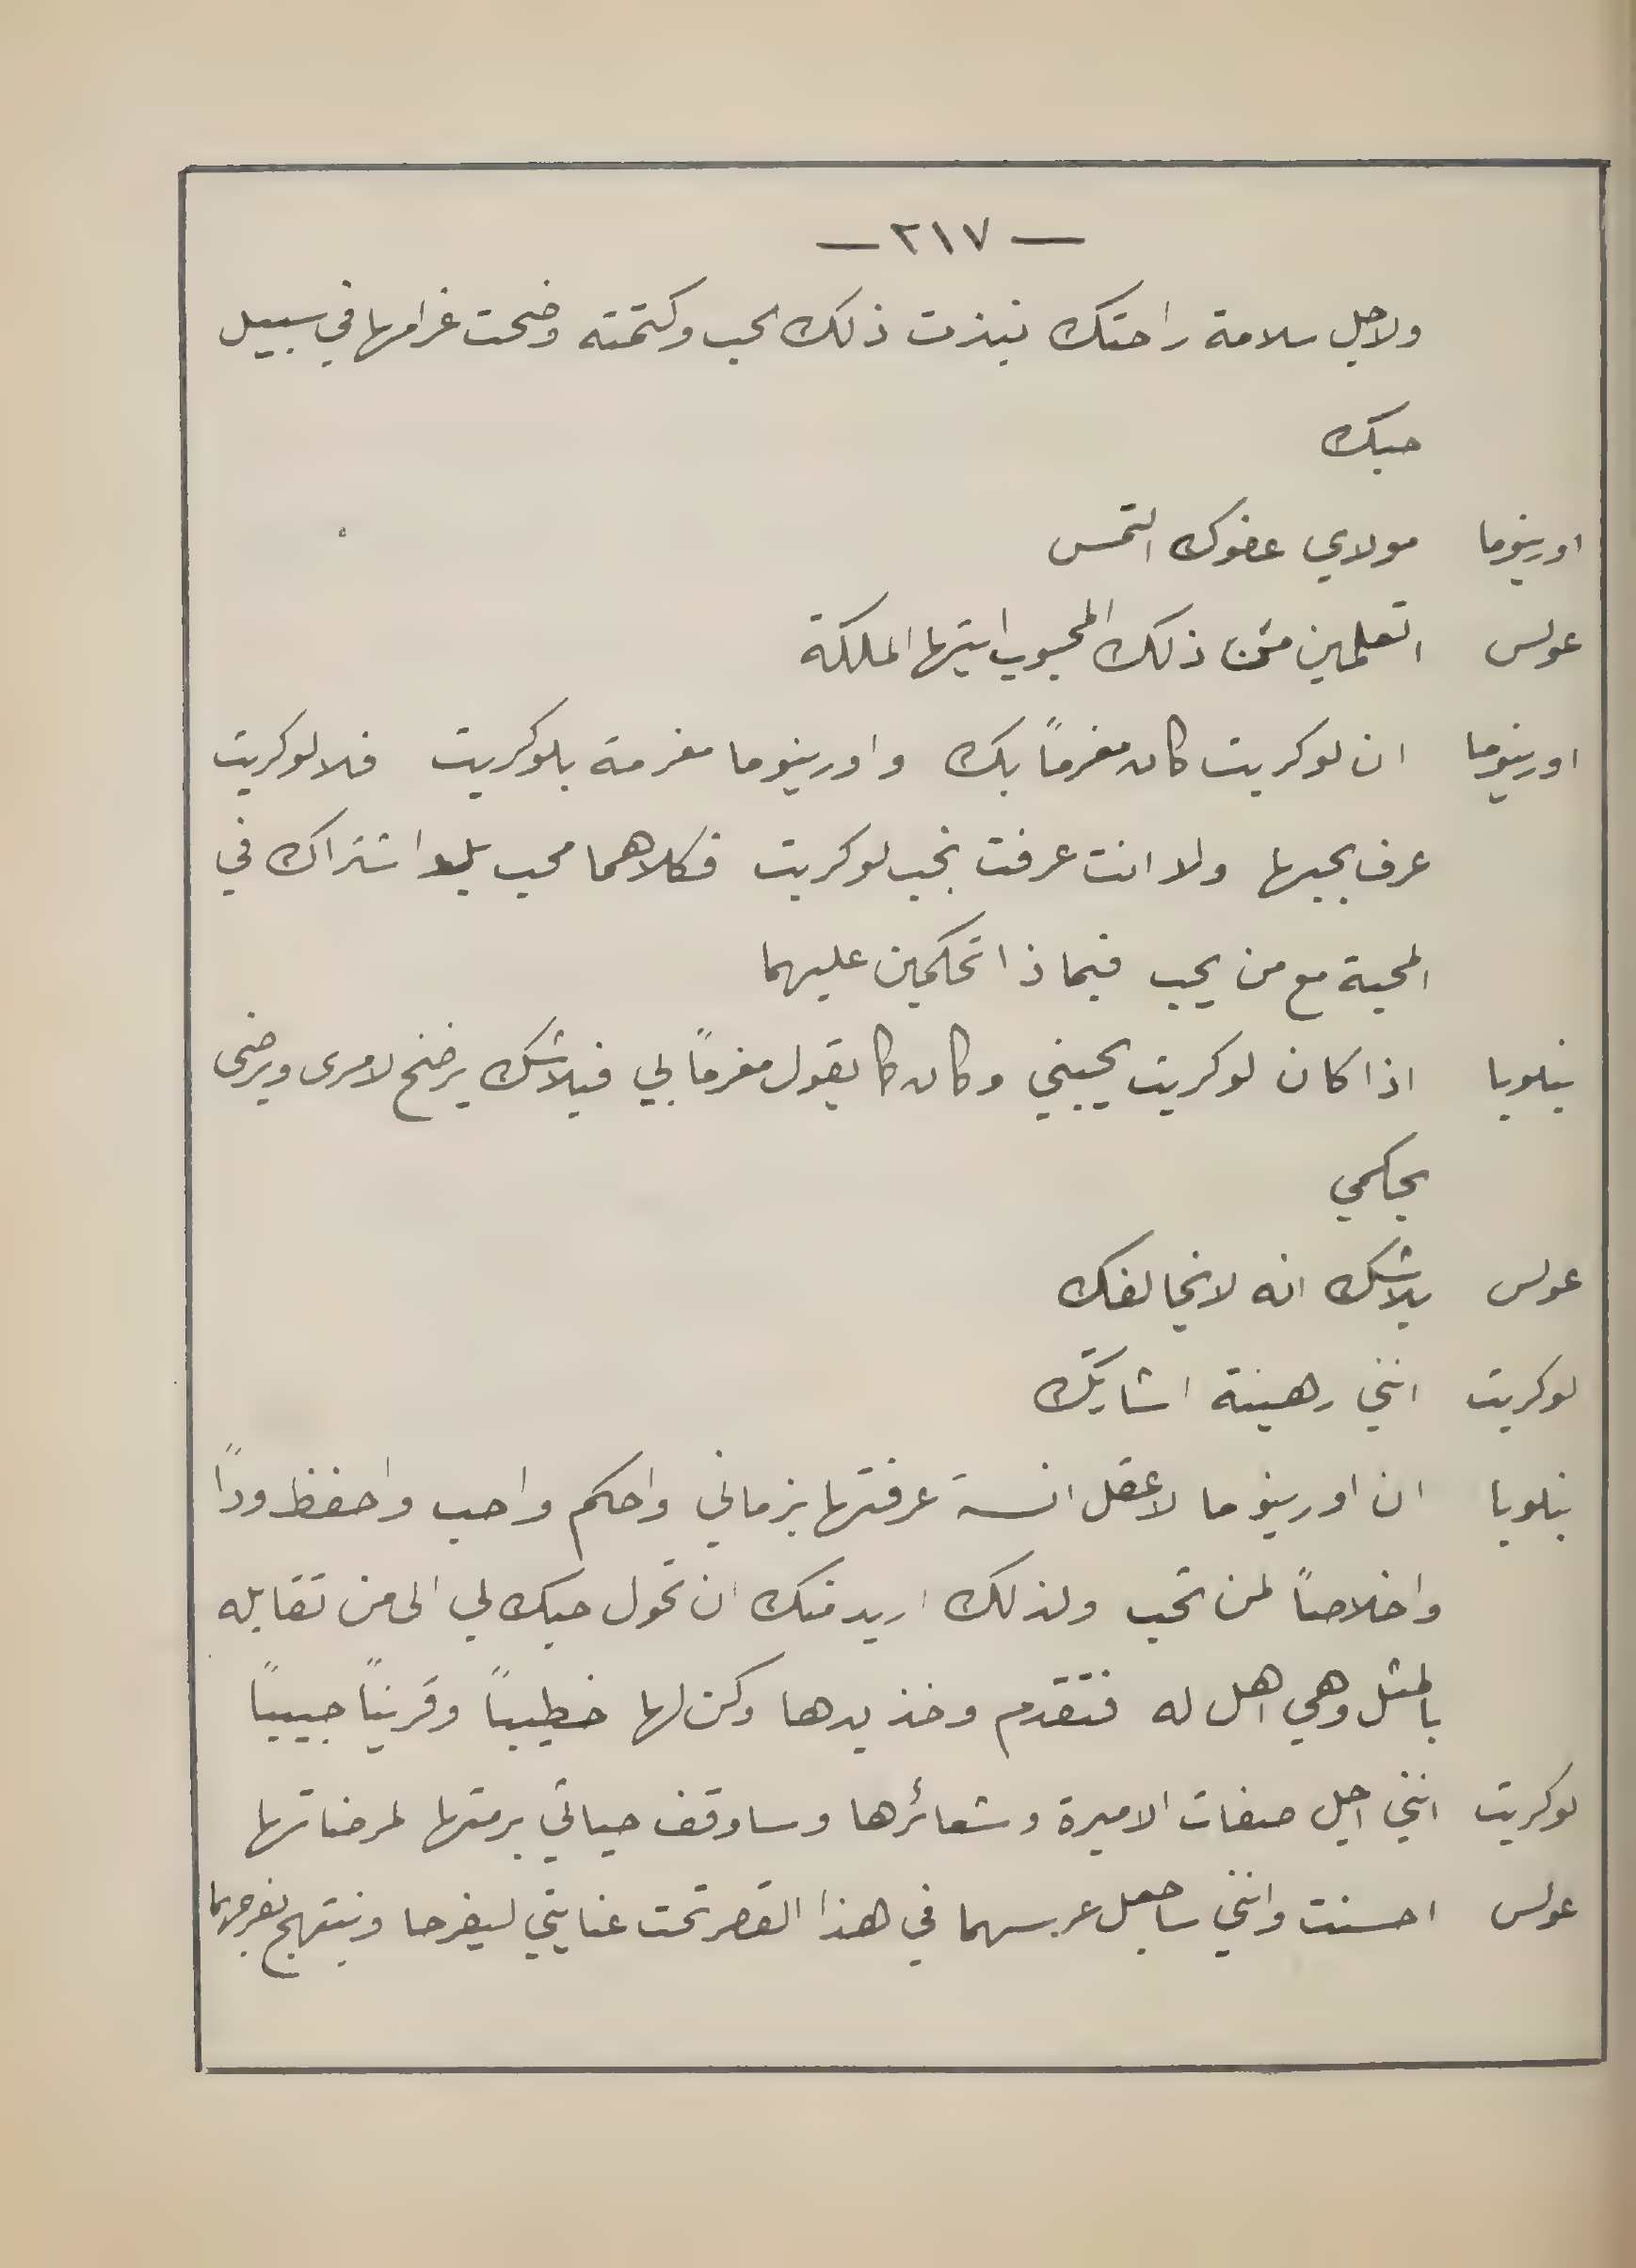 — ٢١٧ —
ولاجل سلامة راحتك نبذت ذلك الحب وكتمته وضحت غرامها في سبيل
حبك
اورينوما مولاي عفوك التمس
عولس اتعلمين من ذلك المحبوب ايتها الملكة
اورينوما ان لوكريت كان مغرماً بك واورينوما مغرمة بلوكريت فلا لوكريت
عرف بحبها ولا انت عرفت بحب لوكريت فكلاهما محب بلا اشتراك في
المحبة مع من يحب فبماذا تحكمين عليهما
بنلوبا اذا كان لوكريت يحبني وكان كما يقول مغرماً لي فبلاشك يرضخ لامرى ويرضى
بحكمي
عولس بلاشك انه لا يخالفك
لوكريت انني رهينة اشارتك
بنلوبا ان اورينوما لاعقل انسة عرفتها بزماني واحكم واحب واحفظ وداً
واخلاصاً لمن تحب ولذلك اريد منك ان تحول حبك لي الى من تقابله
بالمثل وهي اهل له فتقدم وخذ يدها وكن لها خطيباً وقريناً حبيباً
لوكريت انني اجل صفات الاميرة وشعائرها وساوقف حياتي برمتها لمرضاتها
عولس احسنت وانني ساجعل عرسهما في هذا القصر تحت عنايتي ليفرحا ونبتهج بفرحهما